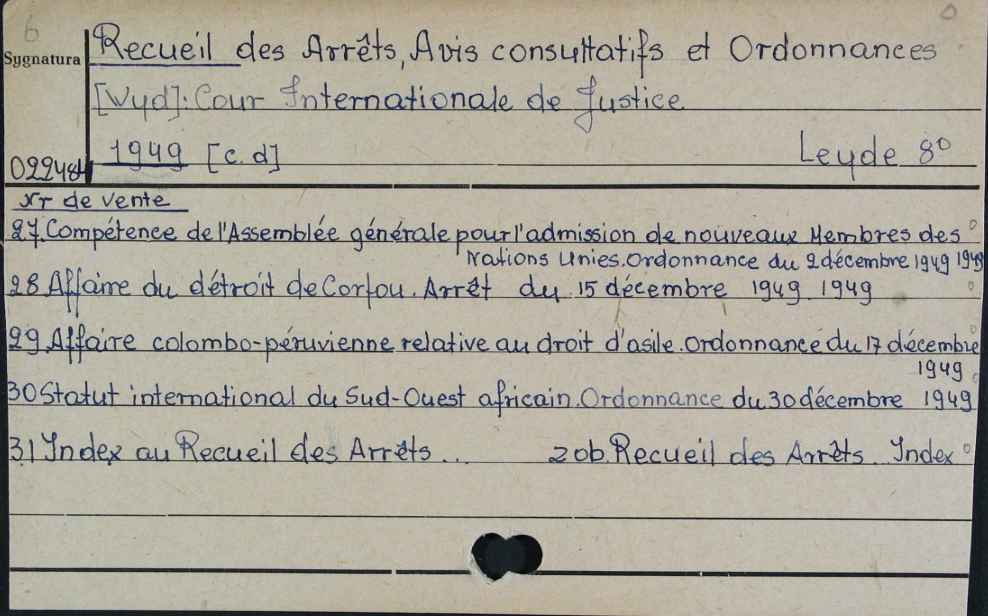 6
Recueil des Arrêts, Avis consultatifs et Ordonnances
Sygnatura
[Wyd]: Cour Internationale de Justice
1949 [c.d] Leyde 8°
022484
Nr de vente
27. Compétence de l'Assemblée générale pour l'admission de nouveaux Membres des
Nations Unies. Ordonnance du 2 décembre 1949 1949
28 Affaire du détroit de Corfou. Arrêt du 15 décembre 1949 1949
29. Affaire colombo-péruvienne relative au droit d'asile. Ordonnance du 17 décembre
1949.
30 Statut international du Sud-Ouest africain. Ordonnance du 30 décembre 1949
31 Index au Recueil des Arrêts... zob. Recueil des Arrêts... Index